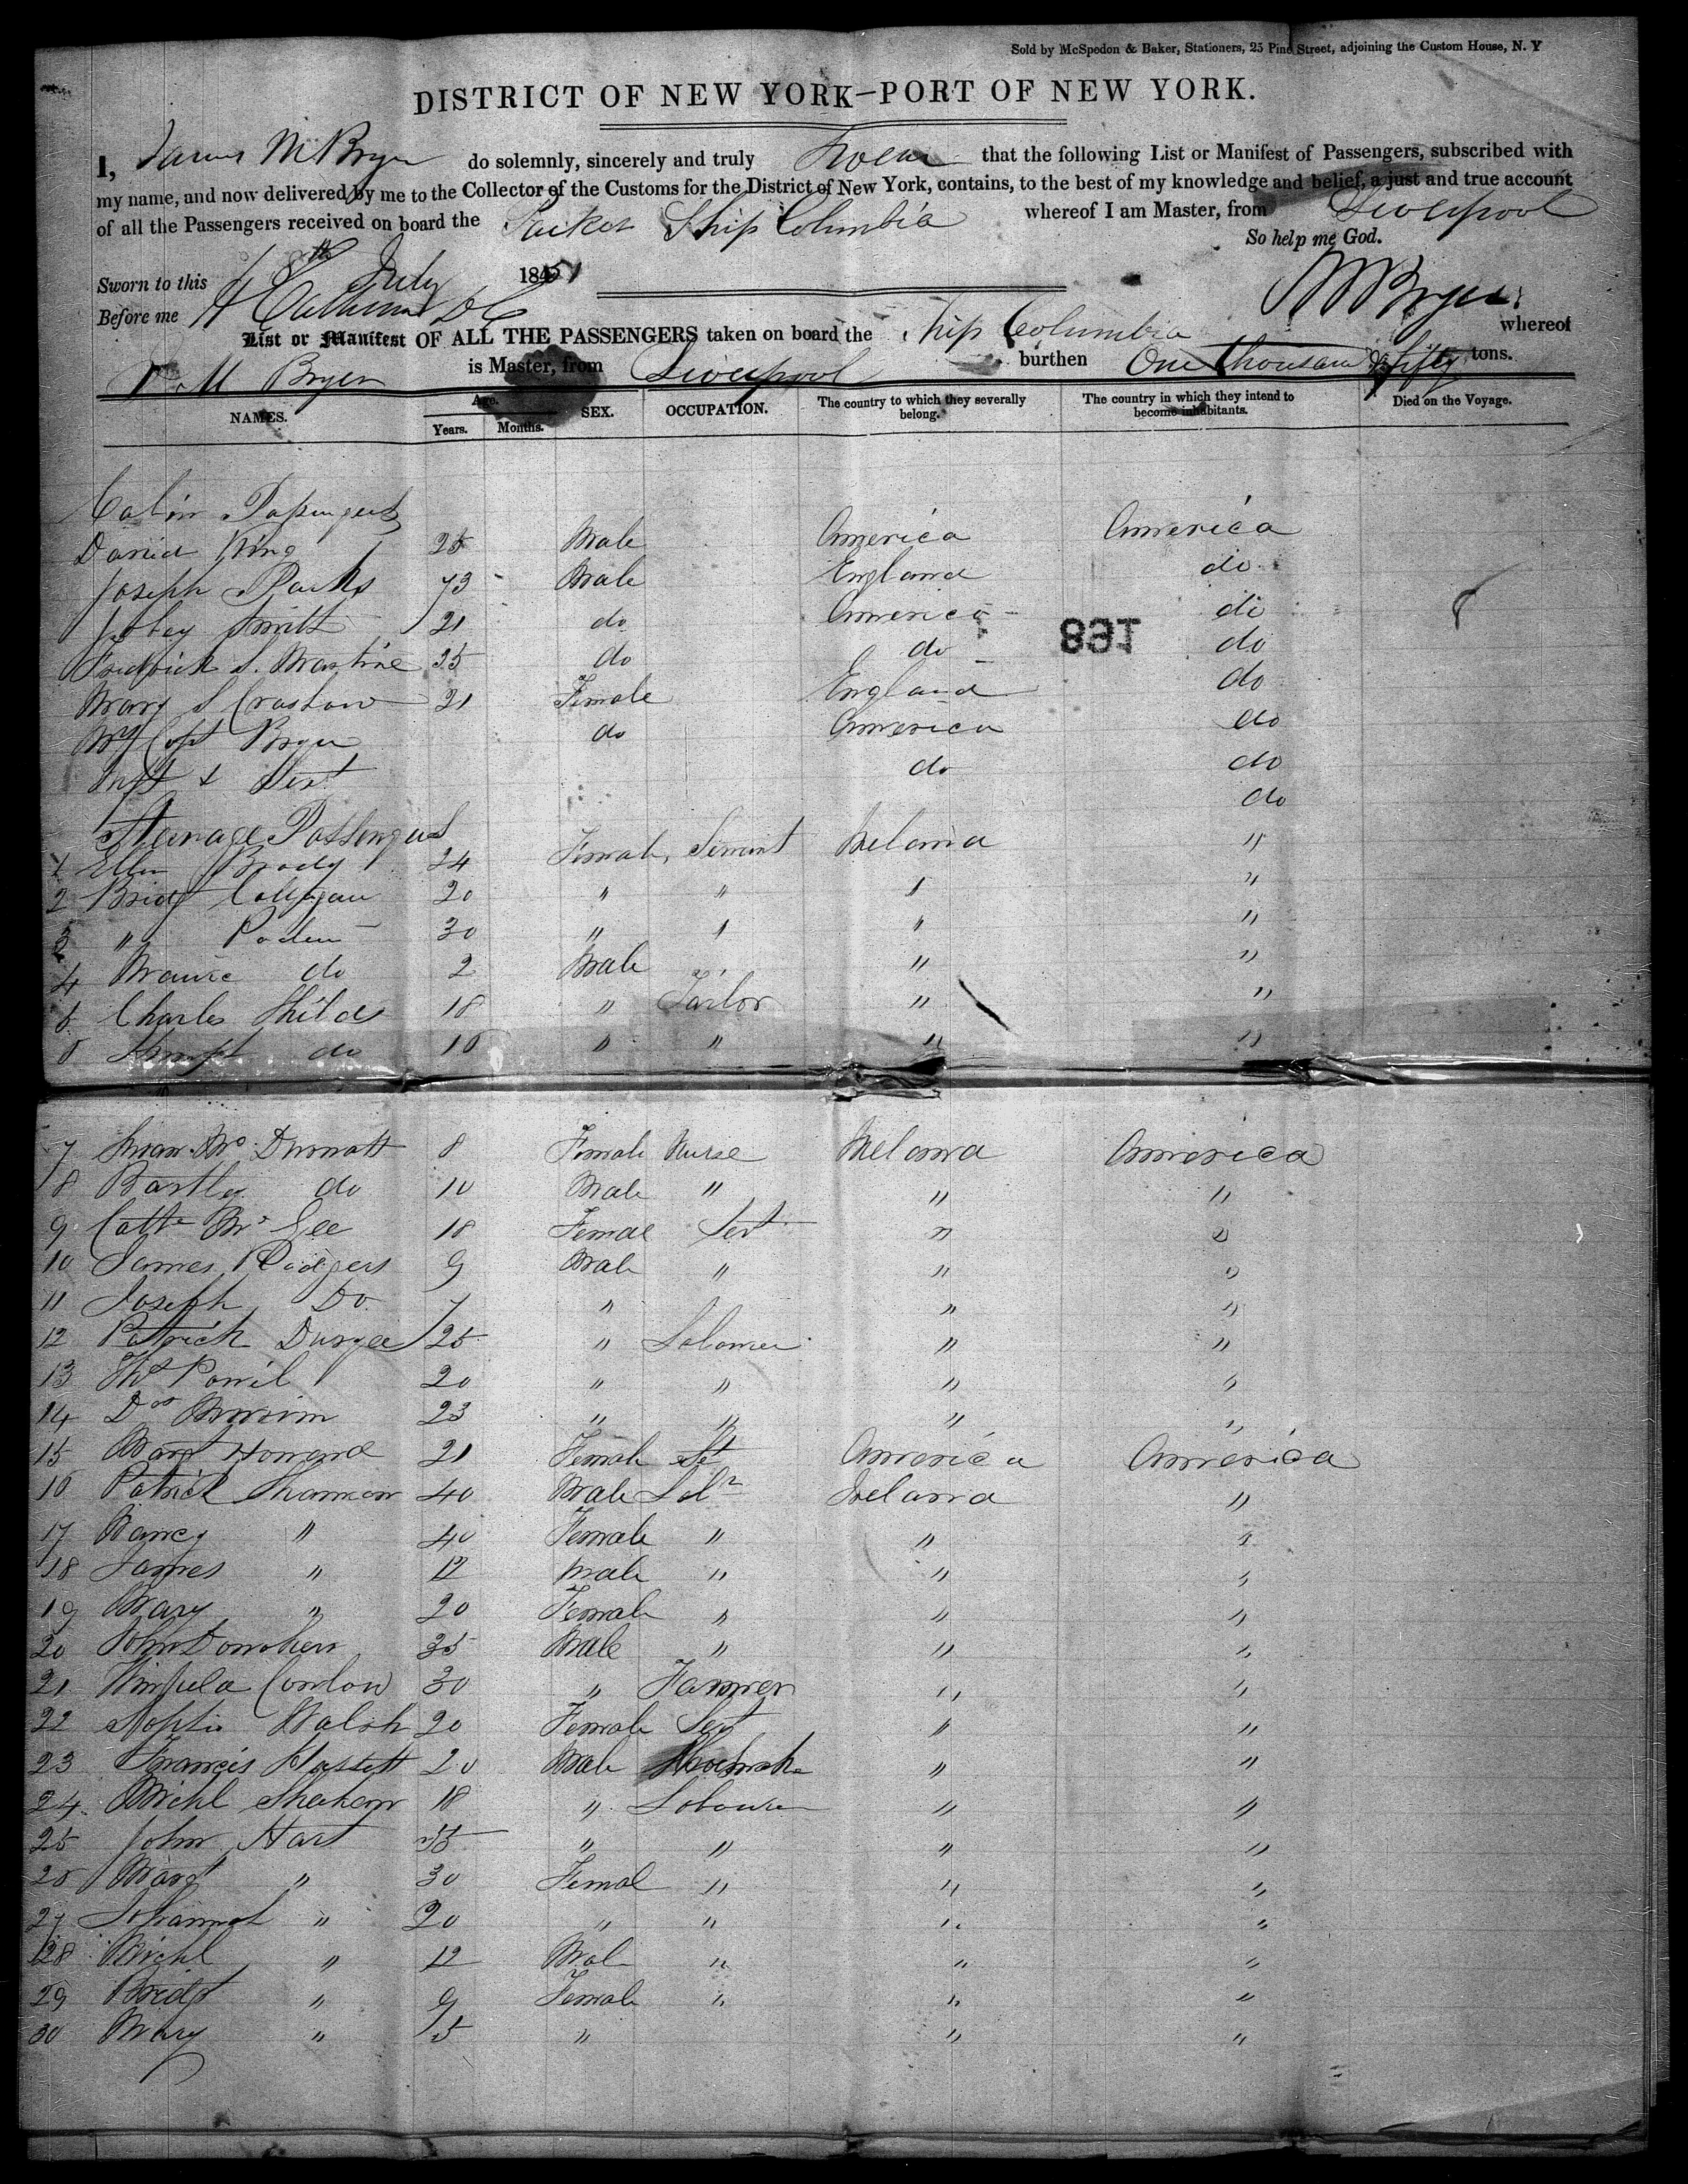 Sold by McSpedon & Baker, Stationers, 25 Pine Street, adjoining the Custom House, N. Y
DISTRICT OF NEW YORK—PORT OF NEW YORK.
I, James M Bryer do solemnly, sincerely and truly swear that the following List or Manifest of Passengers, subscribed with
my name, and now delivered by me to the Collector of the Customs for the District of New York, contains, to the best of my knowledge and belief, a just and true account
of all the Passengers received on board the Packet Ship Columbia whereof I am Master, from Liverpool
So help me God.
Sworn to this 8th July 1851
Before me
List or Manifest OF ALL THE PASSENGERS taken on board the Ship Columbia whereof
Bryer is Master, from Liverpool burthen One thousand & fifty tons.
NAMES. Age. Years. Months. SEX. OCCUPATION. The country to which they severally belong. The country in which they intend to become inhabitants. Died on the Voyage.
Cabin Passengers
David King 25 Male America America
Joseph Parks 73 Male England do
Smith 21 do America do
891
Fredrick S. 25 do do do
Mary S 21 Female England do
Capt Bryer do America do
do do
do
Steerage Passengers
1 Ellen Brady 24 Female Servant Ireland "
2 Bridt 20 " " " "
3 " 30 " " " "
4 do 2 Male " "
5 Charles Shilds 18 " Tailor " "
6 do 16 " " " "
7 Mc Dermott 8 Female Nurse Ireland America
8 Bartley do 10 Male " " "
9 Cathe Mc Gee 18 Female Sert " "
10 James Rodgers 9 Male " " "
11 Joseph Do. 7 " " "
12 Patrick 25 " Labourer " "
13 Ths 20 " " " "
14 Do 23 " " " "
15 Margt Howard 21 Female St America America
16 Patrick Shannon 40 Male Labr Ireland "
17 Nancy " 40 Female " " "
18 James " 12 Male " " "
19 Mary " 20 Female " " "
20 John 35 Male " " "
21 Conlon 30 " Farmer " "
22 Walsh 20 Female Sert " "
23 Francis Hassett 20 Male " "
24 Michl 18 " Labourer " "
25 John Hart 35 " " " "
26 Margt " 30 Femal " " "
27 Johannah " 20 " " " "
28 Michl " 12 Mal " " "
29 Bridt " 9 Female " " "
30 Mary " 5 " " "